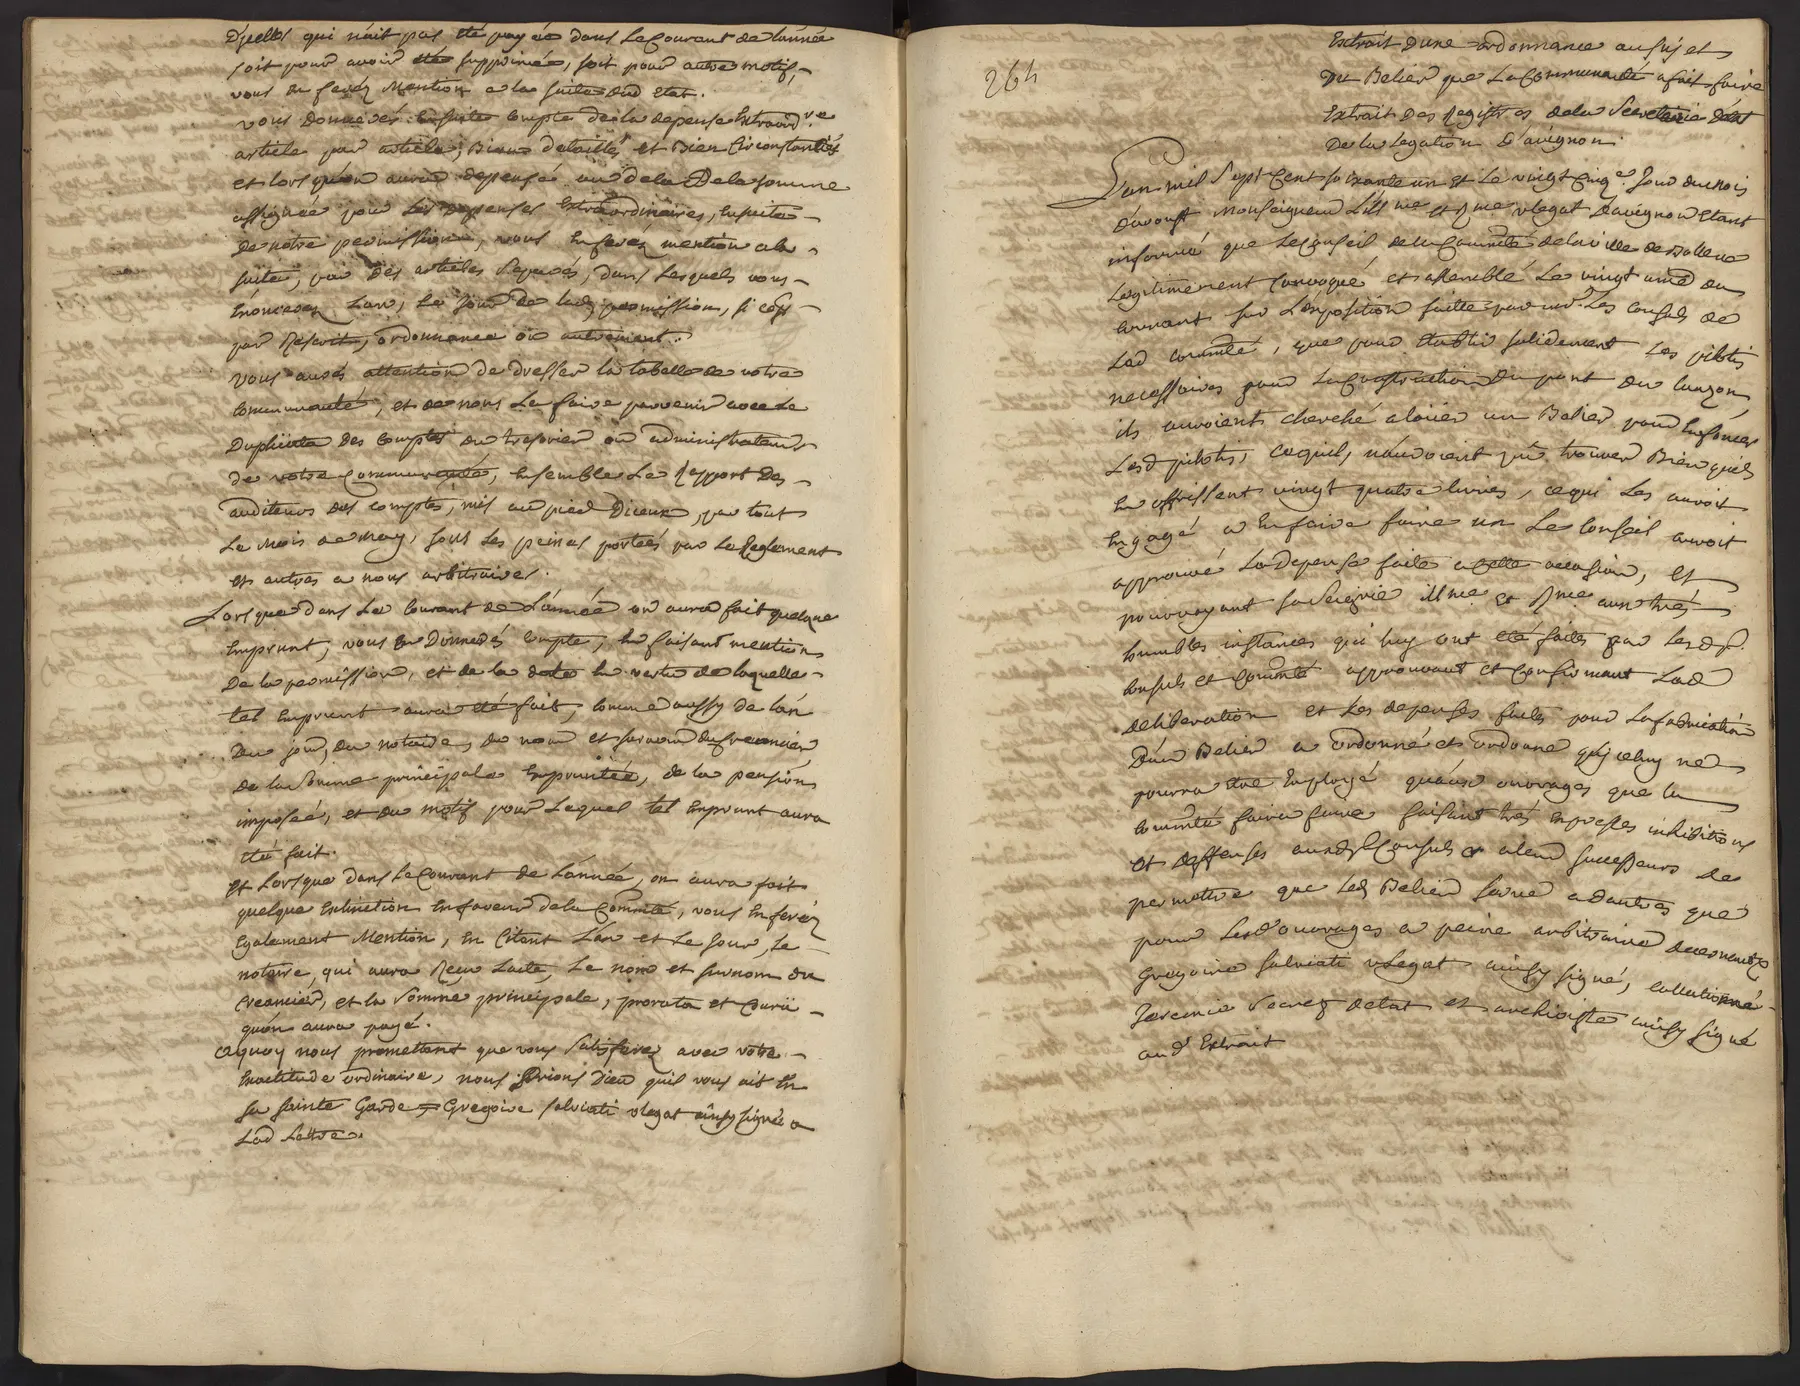 D'jcelles qui n'ait pas été payée dans Le Courant de L'année
soit pour avoir été supprimée, soit pour autre motif,
vous en ferés Mention a la suite dud Etat.
vous Donnerés Ensuite Compte de la depense Extraord.re
article par article, Bien detaillés et Bien Circonstantiés
et Lors qu'on aura depensé au dela De la somme
assignée pour Les Depenses Extraordinaires, Ensuite
De notre permission, vous En ferés mention a la
suite, par des articles separés, dans Lesquels vous
Enoncerés L'an, Le Jour de lad permission, si c'est
par Rescrit, ordonnance ou autrement.
Vous aurés attention de dresser la tabelle de votre
Communauté, et de nous La faire parvenir avec Le
Duplicata des Comptes du tresorier ou administrateur
de votre Communauté, Ensemble Le Rapport Des
auditeurs des comptes, mis au pied D'iceux, par tout
Le Mois de May, sous Les peines portées par Le Reglement
et autres a nous arbitraires.
Lors que dans Le Courant de L'année on aura fait quelque
Emprunt, vous En Donnerés Compte, En faisant mention
De la permission, et de la datte En vertu de laquelle
tel Emprunt aura été fait, Comme aussy de l'an
Du jour, du notaire, du nom et surnom du Creancier
de la Somme principale Empruntée, de la pension
imposée, et du motif pour Lequel tel Emprunt aura
été fait.
Et Lorsque dans Le Courant de L'année, on aura fait
quelque Extinction En faveur de la Commté, vous En ferés
Egalement Mention, En Citant L'an et Le Jour, Le
notaire, qui aura Reçu L'acte, Le nom et surnom du
Creancier, et la Somme principale, prorata et
qu'on aura payé.
a quoy nous promettant que vous Satisferez avec votre
Exactitude ordinaire, nous Prions Dieu qu'il vous ait En
sa sainte Garde = Gregoire salviati vlegat ainsy signé a
Lad Lettre.
264
Extrait D'une ordonnance au sujet
Du Belier que La Communauté a fait faire
Extrait Des Registres de la Secretairie d'état
De la Legation D'avignon.
L'an mil Sept Cent soixante un et Le vingt cinqe. Jour du mois
d'avoust Monseigneur L'ill me et Rme vlegat D'avignon Etant
informé que Le Conseil de la Commté de la ville de Bollene
Legitimement Convoqué et assemblé Le vingt une du
Courant sur L'exposition faitte par mr. Les Consuls de
Lad Commté, que pour Etablir solidement Les pilotis
necessaires pour La Construction Du pont du Lauzon
ils auroient cherché a loüer un Belier pour Enfoncer
Lesd pilotis, ce qu'ils n'auroient pû trouver Bien qu'ils
En offrissent vingt quatre livres, ce qui Les auroit
Engagé a En faire faire un Le Conseil auroit
approuvé La depense faite a cette occasion, et
pourvoyant sa Seigrie illme et Rme aux trés
humbles instances qui luy ont été faites par Lesd srs.
Consuls et Commté approuvant et confirmant Lad
deliberation et Les depenses faites pour La fabrication
D'un Belier a ordonné et ordonne qu'jceluy ne
pourra être Employé qu'aux ouvrages que la
Commté faira faire faisant trés Expresses inhibitions
et deffenses auxd srs Consuls et a leur successeurs de
permettre que Led Belier serve a d'autres que
pour Lesd ouvrages a peine arbitraire
Gregoire salviati vlegat ainsy signé, collationné
Jeremie Secret d'etat et archiviste ainsy signé
aud Extrait